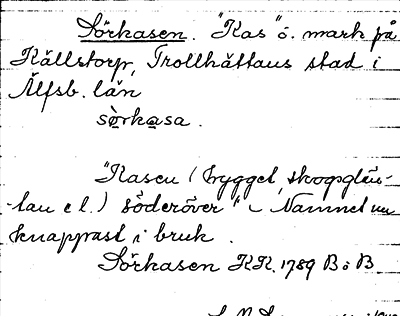 Sörkasen. "Kas" ö. mark på
Källstorp, Trollhättans stad i
Älfsb. län
sö̀rka̲sa.
"Kasen (bygget, skogsglän-
-tan el.) söderöver" - Namnet nu
knappast i bruk.
Sörkasen KK. 1789 B ö B.